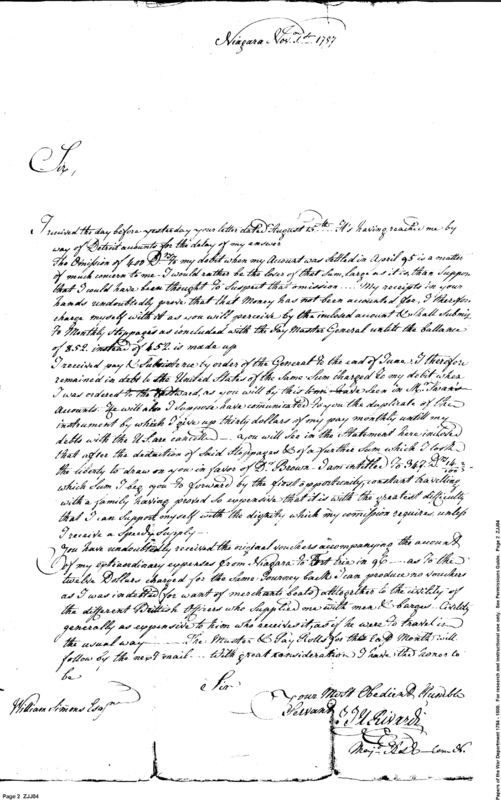 Niagara Nov. 1th 1797
Sir,
I received the day before yesterday your letter dated August 15th It's having reach'd me by
way of Detroit accounts for the delay of my answer
The Omission of 400 Drs to my debit when my Account was Settled in April 95 is a matter
of much concern to me. I would rather be the loser of that Sum, large as it is, than Suppose
that I could have been thought to Suspect that omission.... My receipts in your
hands undoubtedly prove that that Money has not been accounted for, I therefore
charge myself with it as you will perceive by the inclosed account & shall Submit
to Monthly Stoppages as concluded with the Pay Master General untill the ballance
of 852 instead of 452 is made up
I received pay & Subsistence by order of the General to the end of June. I therefore
remained in debt to the United States of the Same Sum charged to my debit when
I was ordered to the as you will by this have Seen in Mr Swan's
Accounts. He will also I Suppose have communicated to you the duplicate of the
instrument by which I give up thirty dollars of my pay monthly untill my
debts with the U.S. are cancelled - you will see in the Statement here inclosed
that after the deduction of Said Stoppages & of a further Sum which I took
the liberty to draw on you in favor of Dr Brown. I am intitled to 347 Drs 14
which Sum I beg you to forward by the first opportunity, constant travelling
with a family having proved So expensive that it is with the greatest difficulty
that I can Support myself with the dignity which my comission requires unless
I receive a Speedy Supply
You have undoubtedly received the original vouchers accompanying the account
of my extraordinary expenses from Niagara to in 96 - as to the
twelve Dollars charged for the Same Journey back I can produce no vouchers
as I was indebted for want of merchants boats alltogether to the civility of
the different British Officers who Supplied me with men & barges. Civility
generally as expensive to him who receives it, as if he were to travel in
the usual way - The Muster & Pay Rolls for that Month will
follow by the next mail - With great consideration I have the honor to
be
Sir
Your Most Obedient, Humble
Servant
J J U Rivardi
Majr
William Simmons Esqre
Page 2 ZJJ04
Papers of the War Department 1784 - 1800. For research and instructional use only. See Permissions Guide. Page 2 ZJJ04